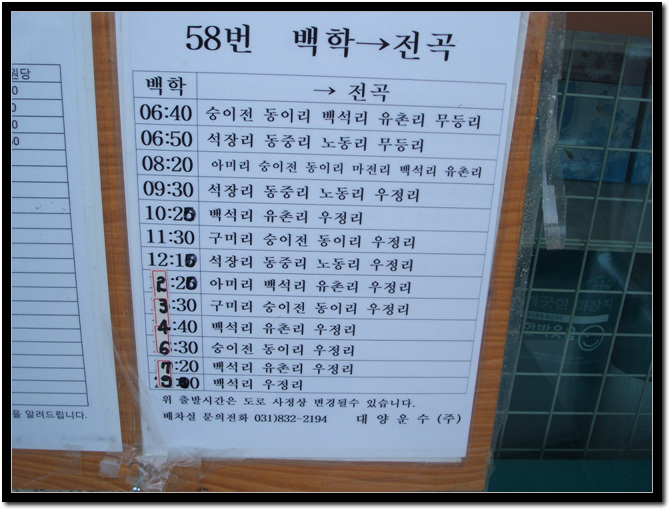 58번 백학→전곡
백학 → 전곡
06:40 숭이전 동이리 백석리 유촌리 무등리
06:50 석장리 동중리 노동리 무등리
08:20 아미리 숭이전 동이리 마전리 백석리 유촌리
09:30 석장리 동중리 노동리 우정리
10:20 백석리 유촌리 우정리
11:30 구미리 숭이전 동이리 우정리
12:10 석장리 동중리 노동리 우정리
2:20 아미리 백석리 유촌리 우정리
3:30 구미리 숭이전 동이리 우정리
4:40 백석리 유촌리 우정리
6:30 숭이전 동이리 우정리
7:20 백석리 유촌리 우정리
백석리 우정리
위 출발시간은 도로 사정상 변경될수 있습니다.
배차실 문의전화 031)832-2194 대양운수 (주)
원당
을 알려드립니다.